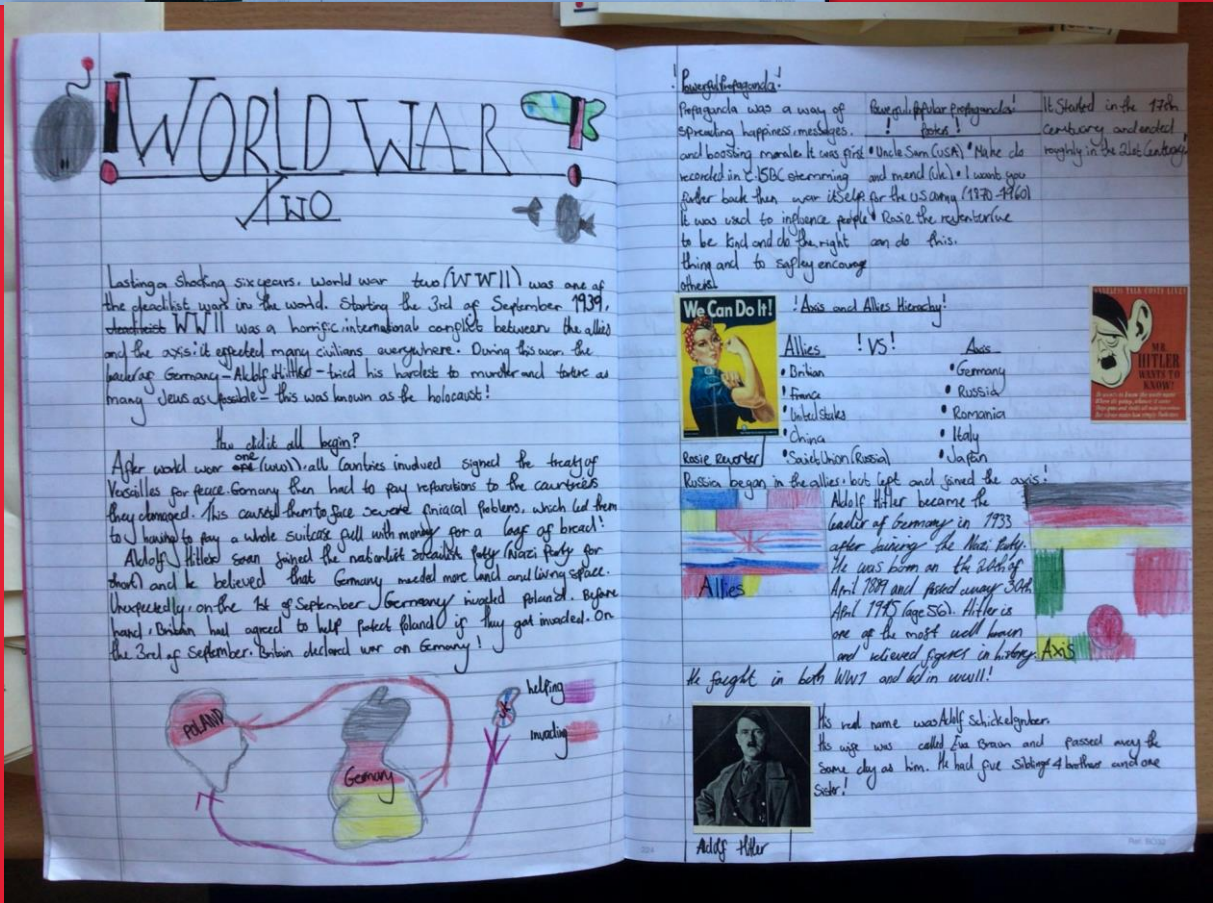 WORLD WAR
TWO
Lasting a shocking six years, world war two (WWII) was one of
the deadilist wars in the world. Starting the 3rd of September 1939,
WWII was a horrific, international conflict between the allies
and the axis: it effected many civilians everywhere. During this war, the
leader of Germany - Aldolf Hittler - tried his hardest to murder and torture as
many Jews as possible - this was known as the holocaust!
How did it all begin?
After world woar one (WWI), all countries involved signed the treaty of
Versailles for peace. Germany then had to pay reparations to the countries
they damaged. This caused them to face severe finiacal problems, which led them
to having to pay a whole suitcase full with money for a loaf of bread!
Aldolf Hitler soon joined the nationlist socailist paty (Nazi Party for
short) and he believed that Germany needed more land and living space.
Unexpectedly, on the 1st of September Germany invaded Poland. Before
hand, Britain had agreed to help protect Poland if they got invaded. On
the 3rd of September, Britain declared war on Germany!
POLAND
Germany
UK
helping
invading
!Powerful Propaganda!
Propaganda was a way of
spreading happiness, messages,
and boosting morale. It was first
recorded in C.15BC stemming
further back then war itself.
It was used to influence people
to be kind and do the right
thing and to safley encourage
others!
Powerful, popular propaganda!
! Posters!
• Uncle Sam (USA) • Make do
and mend (UK) • I want you
for the US army (1870-1960)
• Rosie the (we
can do this.
It started in the 17th
centuary and ended
roughly in the 21st Century!
We Can Do It!
Rosie
! Axis and Allies Hierachy!
Allies ! VS ! Axis
• Britian • Germany
• France • Russia
• United states • Romania
• China • Italy
• Soviet Union (Russia) • Japan
MR.
HITLER
WANTS TO
KNOW!
Russia began in the allies, but left and joined the axis!
Allies
Adolf Hitler became the
leader of Germany in 1933
after joining the Nazi Party.
He was born on the 20th of
April 1889 and passed away 30th
April 1945 (age 56). Hitler is
one of the most well known
and figures in history.
Axis
He faught in both WW1 and led in WWII!
Adolf Hitler
His real name was Adolf Schickelgruber.
His wife was called Eva Braun and passed away the
same day as him. He had five siblings 4 brothers and one
sister!